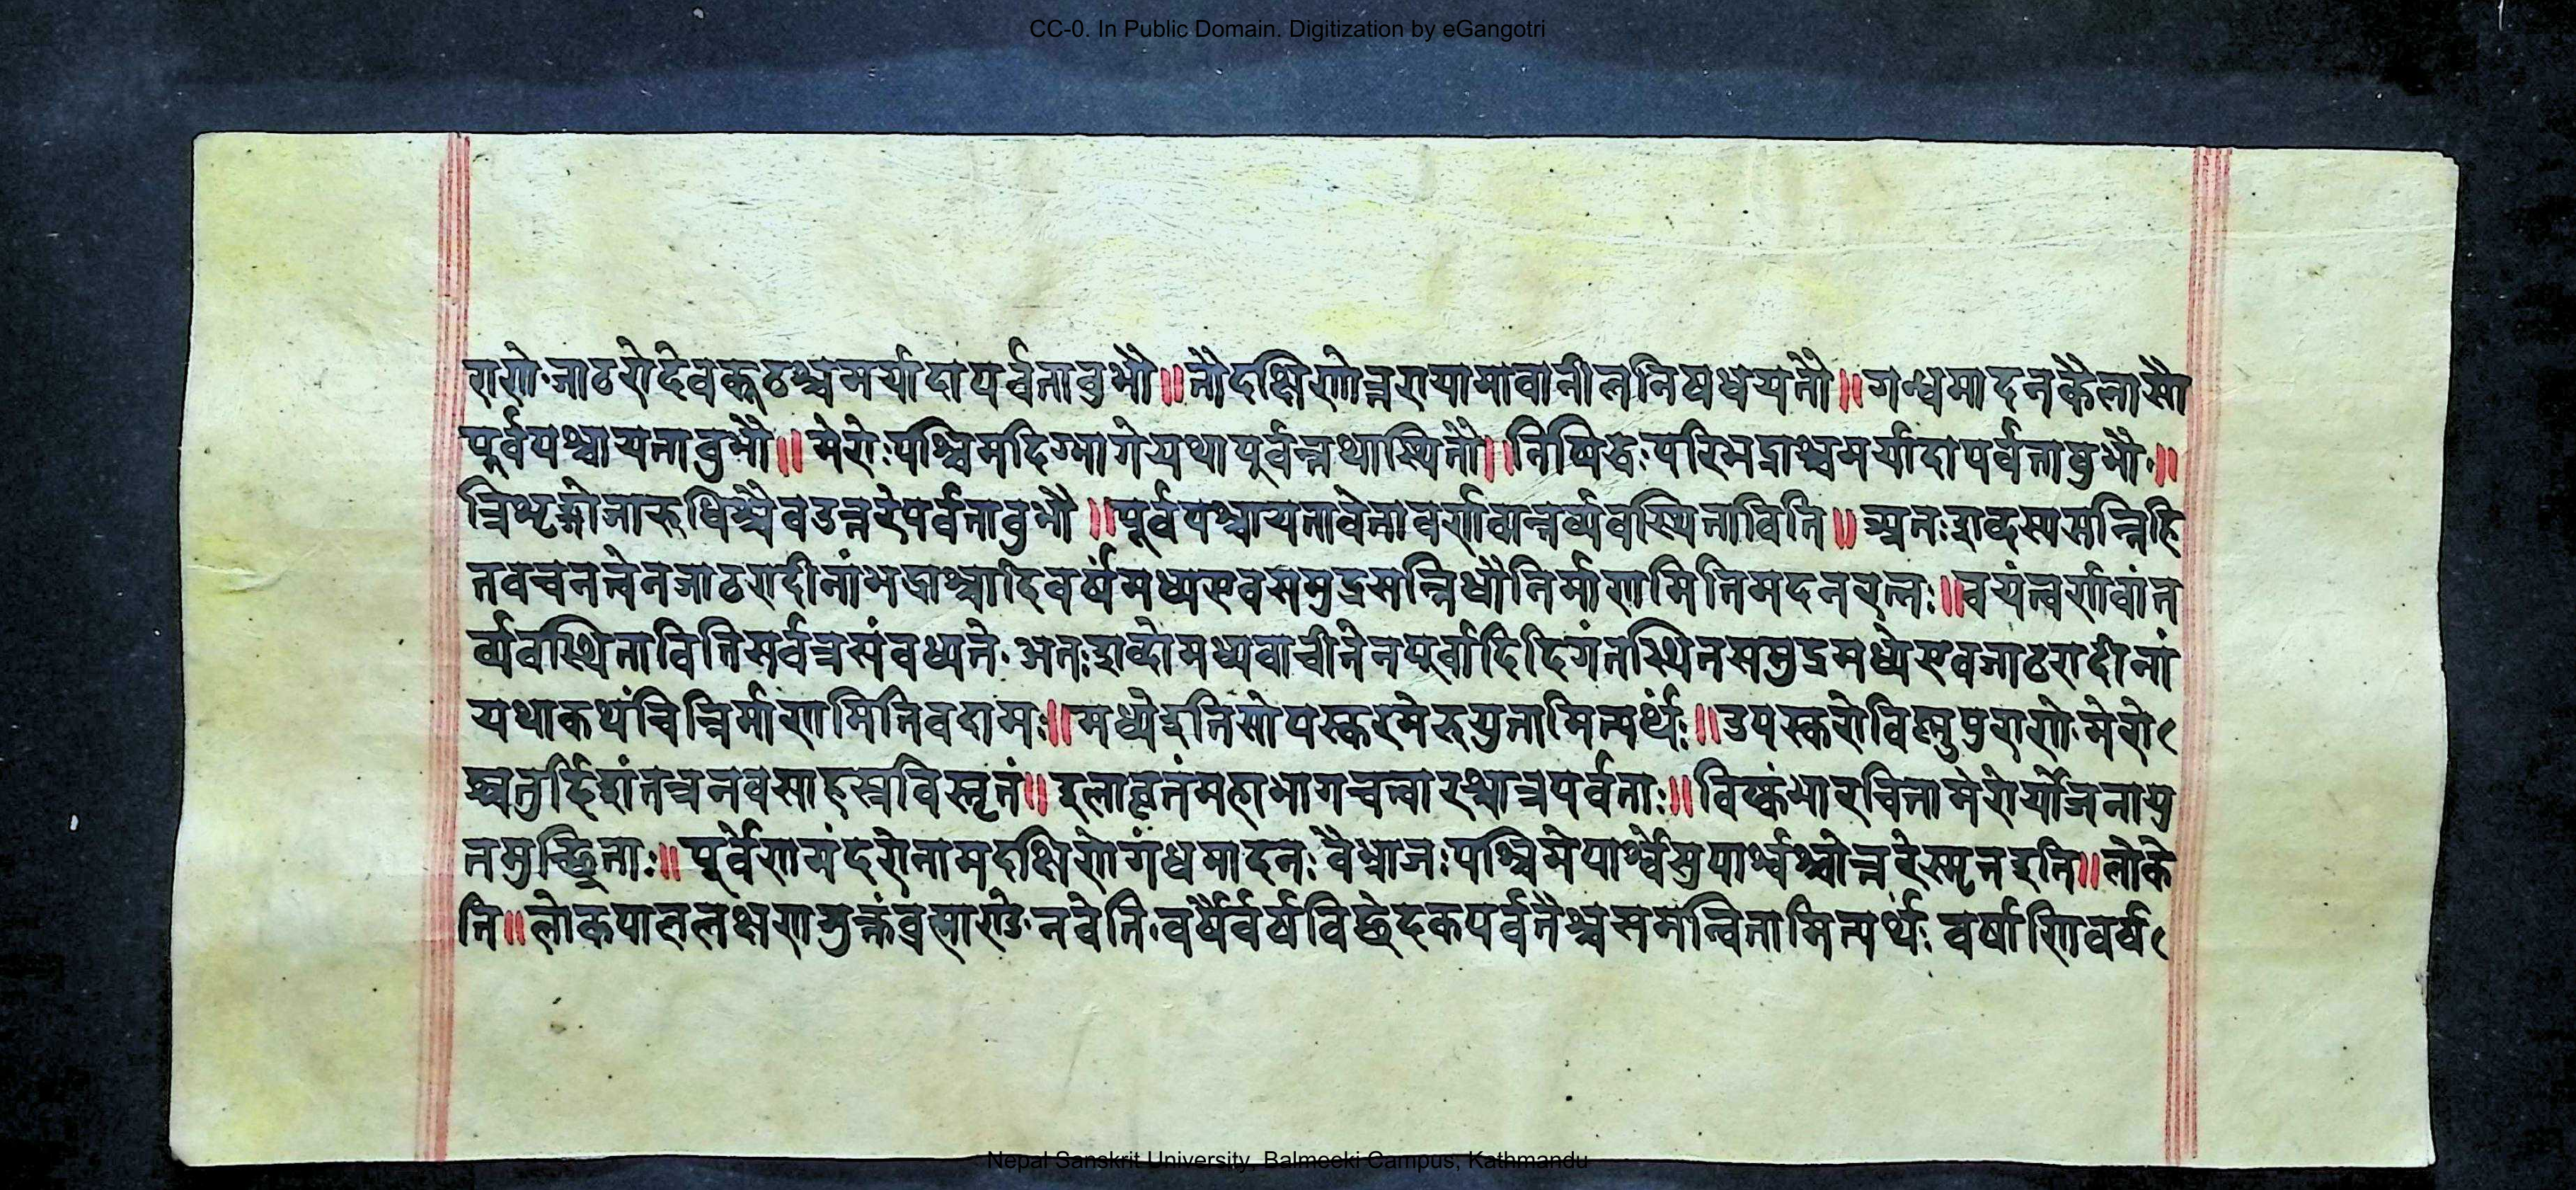 CC-0. In Public Domain. Digitization by eGangotri
राणे॰जाठरोदेवकूठश्चमर्यादापर्वतावुभौ॥तौदक्षिणोत्तरायामावानीलनिषधयतौ॥गन्धमादनकैलासौ
पूर्वपश्चायतावुभौ॥मेरोःपश्चिमदिग्भागेयथापूर्वन्तथास्थितौ॥निषिद्धःपरिभद्राश्चमर्यादापर्वतावुभौ॰॥
त्रिभृङ्गोजारुधिश्चैवउत्तरेपर्वतावुभौ॥पूर्वपश्चायतावेतावर्णवान्तर्व्यवस्थिताविति॥अतःशब्दस्यसन्निहि
तवचनत्वेनजाठरादीनांभद्राश्चादिवर्षमध्यएवसमुद्रसन्निधौनिर्माणमितिमदनरत्नः॥वयंत्वर्णवांत
र्व्यवस्थितावितिसर्वत्रसंवध्यते॰अतःशब्दोमध्यवाचीतेनपूर्वादिदिगंतस्थितसमुद्रमध्येएवजाठरादीनां
यथाकथंचिन्निर्माणमितिवदामः॥मध्येइतिसोपस्करमेरुयुतामित्यर्थः॥उपस्करोविष्णुपुराणे॰मेरो
श्चतुर्द्दिशंतत्रनवसाहस्रविस्तृतं॥इलावृतंमहाभागचत्वारश्चात्रपर्वताः॥विष्कंभारचितामेरोर्योजनायु
तमुच्छ्रिताः॥पूर्वेणमंदरोनामदक्षिणेगंधमादनःवैभ्राजःपश्चिमेपार्श्वेसुपार्श्वश्चोत्तरेस्मृतइति॥लोके
ति॥लोकपाललक्षणमुक्तंब्रह्माण्डे॰नवेति॰वर्षैर्वर्षविछेदकपर्वतैश्चसमन्वितामित्यर्थःवर्षाणिवर्ष
Nepal Sanskrit University, Balmeeki Campus, Kathmandu